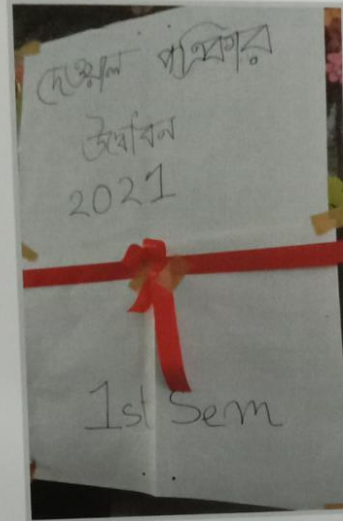 দেওয়াল পত্রিকার
উদ্বোধন
2021
1st Sem